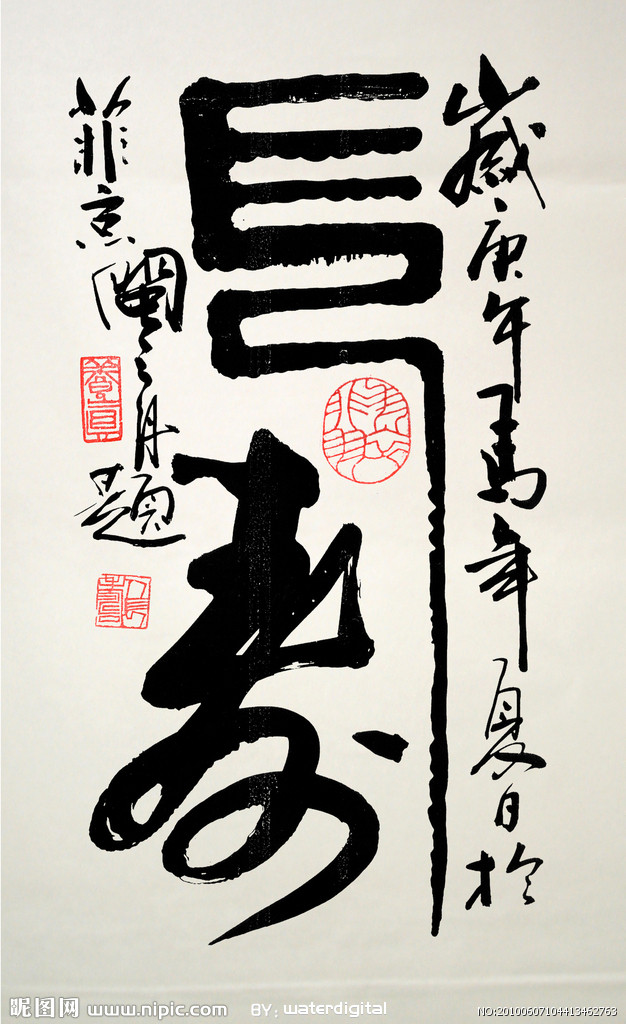 歲庚午馬年夏日於
長壽
菲京閩之舟題
養真
昵图网 www.nipic.com
BY: waterdigital
NO:20100607104413462763